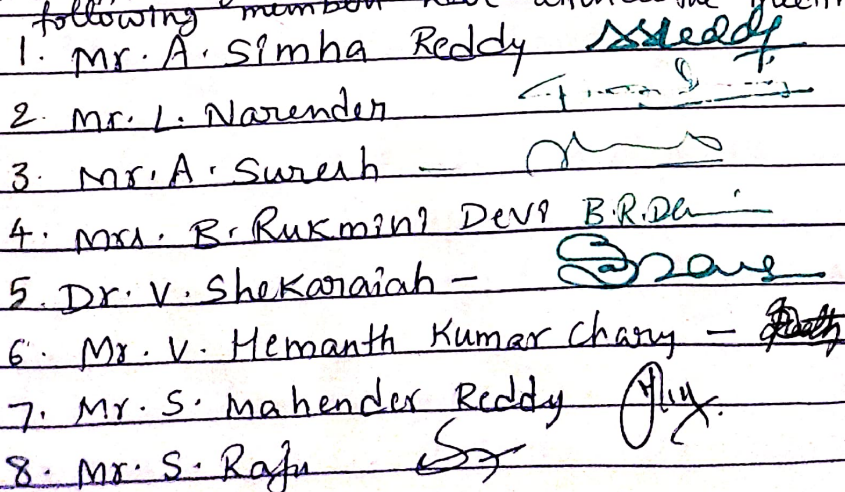 following member have attended the meeting
1. Mr. A. Simha Reddy
2. Mr. L. Narender
3. Mr. A. Suresh -
4. Mrs. B. Rukmini Devi B.R.Devi
5. Dr. V. Shekaraiah -
6. Mr. V. Hemanth Kumar chary -
7. Mr. S. Mahender Reddy
8. Mr. S. Raju